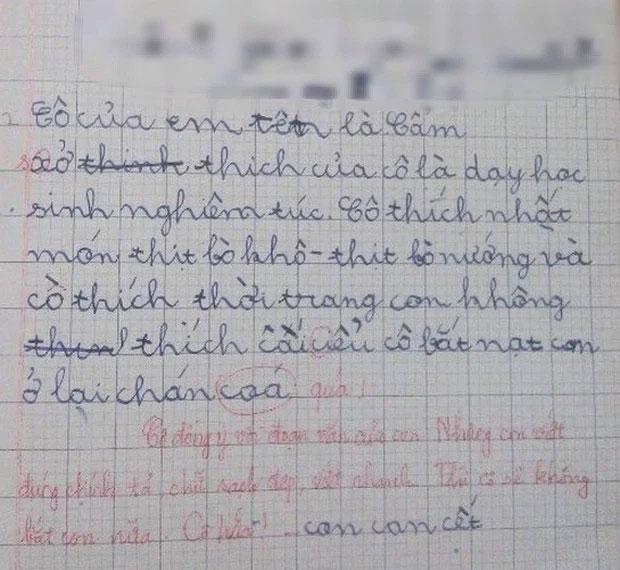 Cô của em tên là Cẩm
sở thinh thích của cô là dạy học
sinh nghiêm túc. Cô thích nhất
món thịt bò khô - thịt bò nướng và
cô thích thời trang con không
thích cái kiểu cô bắt nạt con
ở lại chán coá quá!
Cô đồng ý với đoạn văn của con Nhưng con viết
đúng chính tả chữ sạch đẹp, viết nhanh Thì cô sẽ không
bắt con nữa. Cô hứa! con can cết